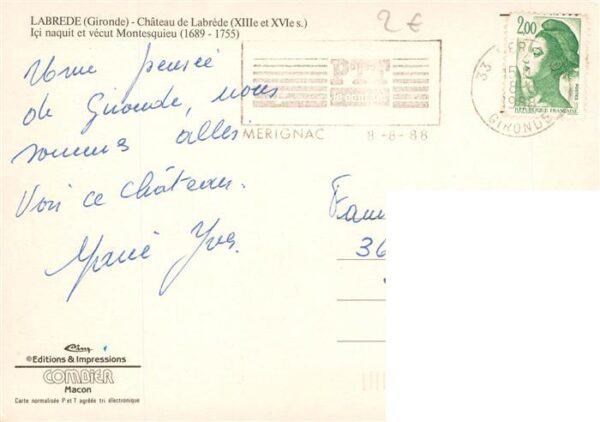 LABREDE (Gironde) - Château de Labrède (XIIIe et XVIe s.)
Içi naquit et vécut Montesquieu (1689 - 1755)
2 €
PTT
MERIGNAC 8-8-88
33
GIRONDE
2,00
REPUBLIQUE FRANÇAISE
Une pensée
de Gironde, nous
sommes allés
Voir ce château.
Marie Yves
Fam
36
Cim
©Editions & Impressions
COMBIER
Macon
Carte normalisée P et T agréée tri électronique